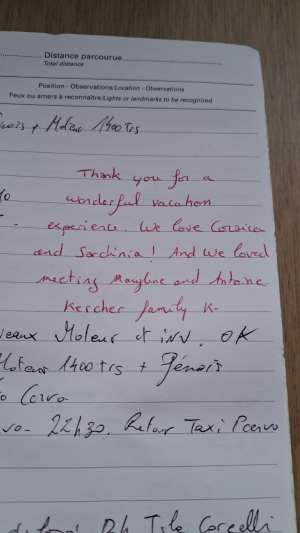 Distance parcourue
Total distance
Position - Observations/Location - Observations
Feux ou amers à reconnaître/Lights or landmarks to be recognized
+ Moteur 1400 Trs
Thank you for a
wonderful vacation
experience. We love Corsica
and Sardinia! And we loved
meeting Maryline and Antoine
Kercher family K-
Moteur et inv. OK
Moteur 1400 trs + Génois
Cervo
22h30. Retour Taxi Pcervo